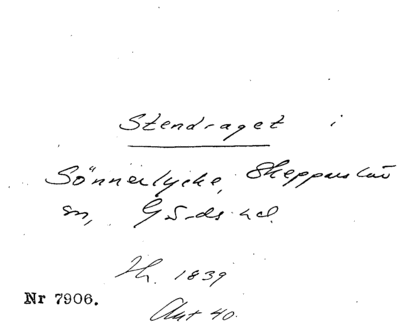 Stendraget i
Sönnerlycke, Skepparslöv
sn, Gärds hd.
Th. 1839
Nr 7906.
Akt 40.